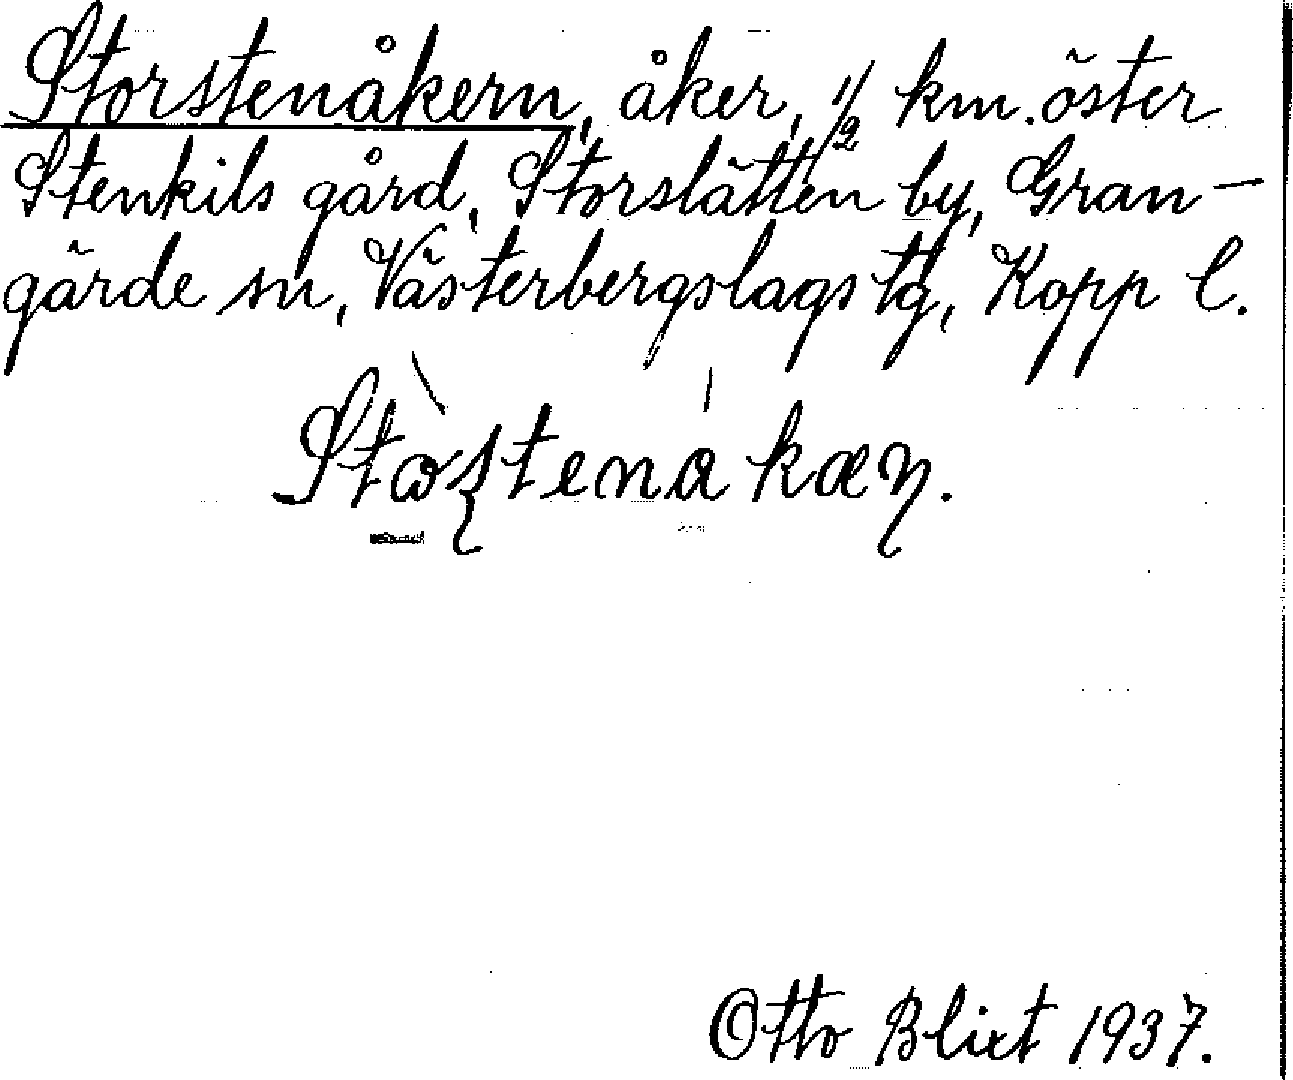 Storstenåkern, åker, 1/2 km. öster
Stenkils gård, Storslätten by, Gran-
gärde sn, Västerbergslags tg, Kopp l.
Stòʂtenákæɳ.
Otto Blixt 1937.